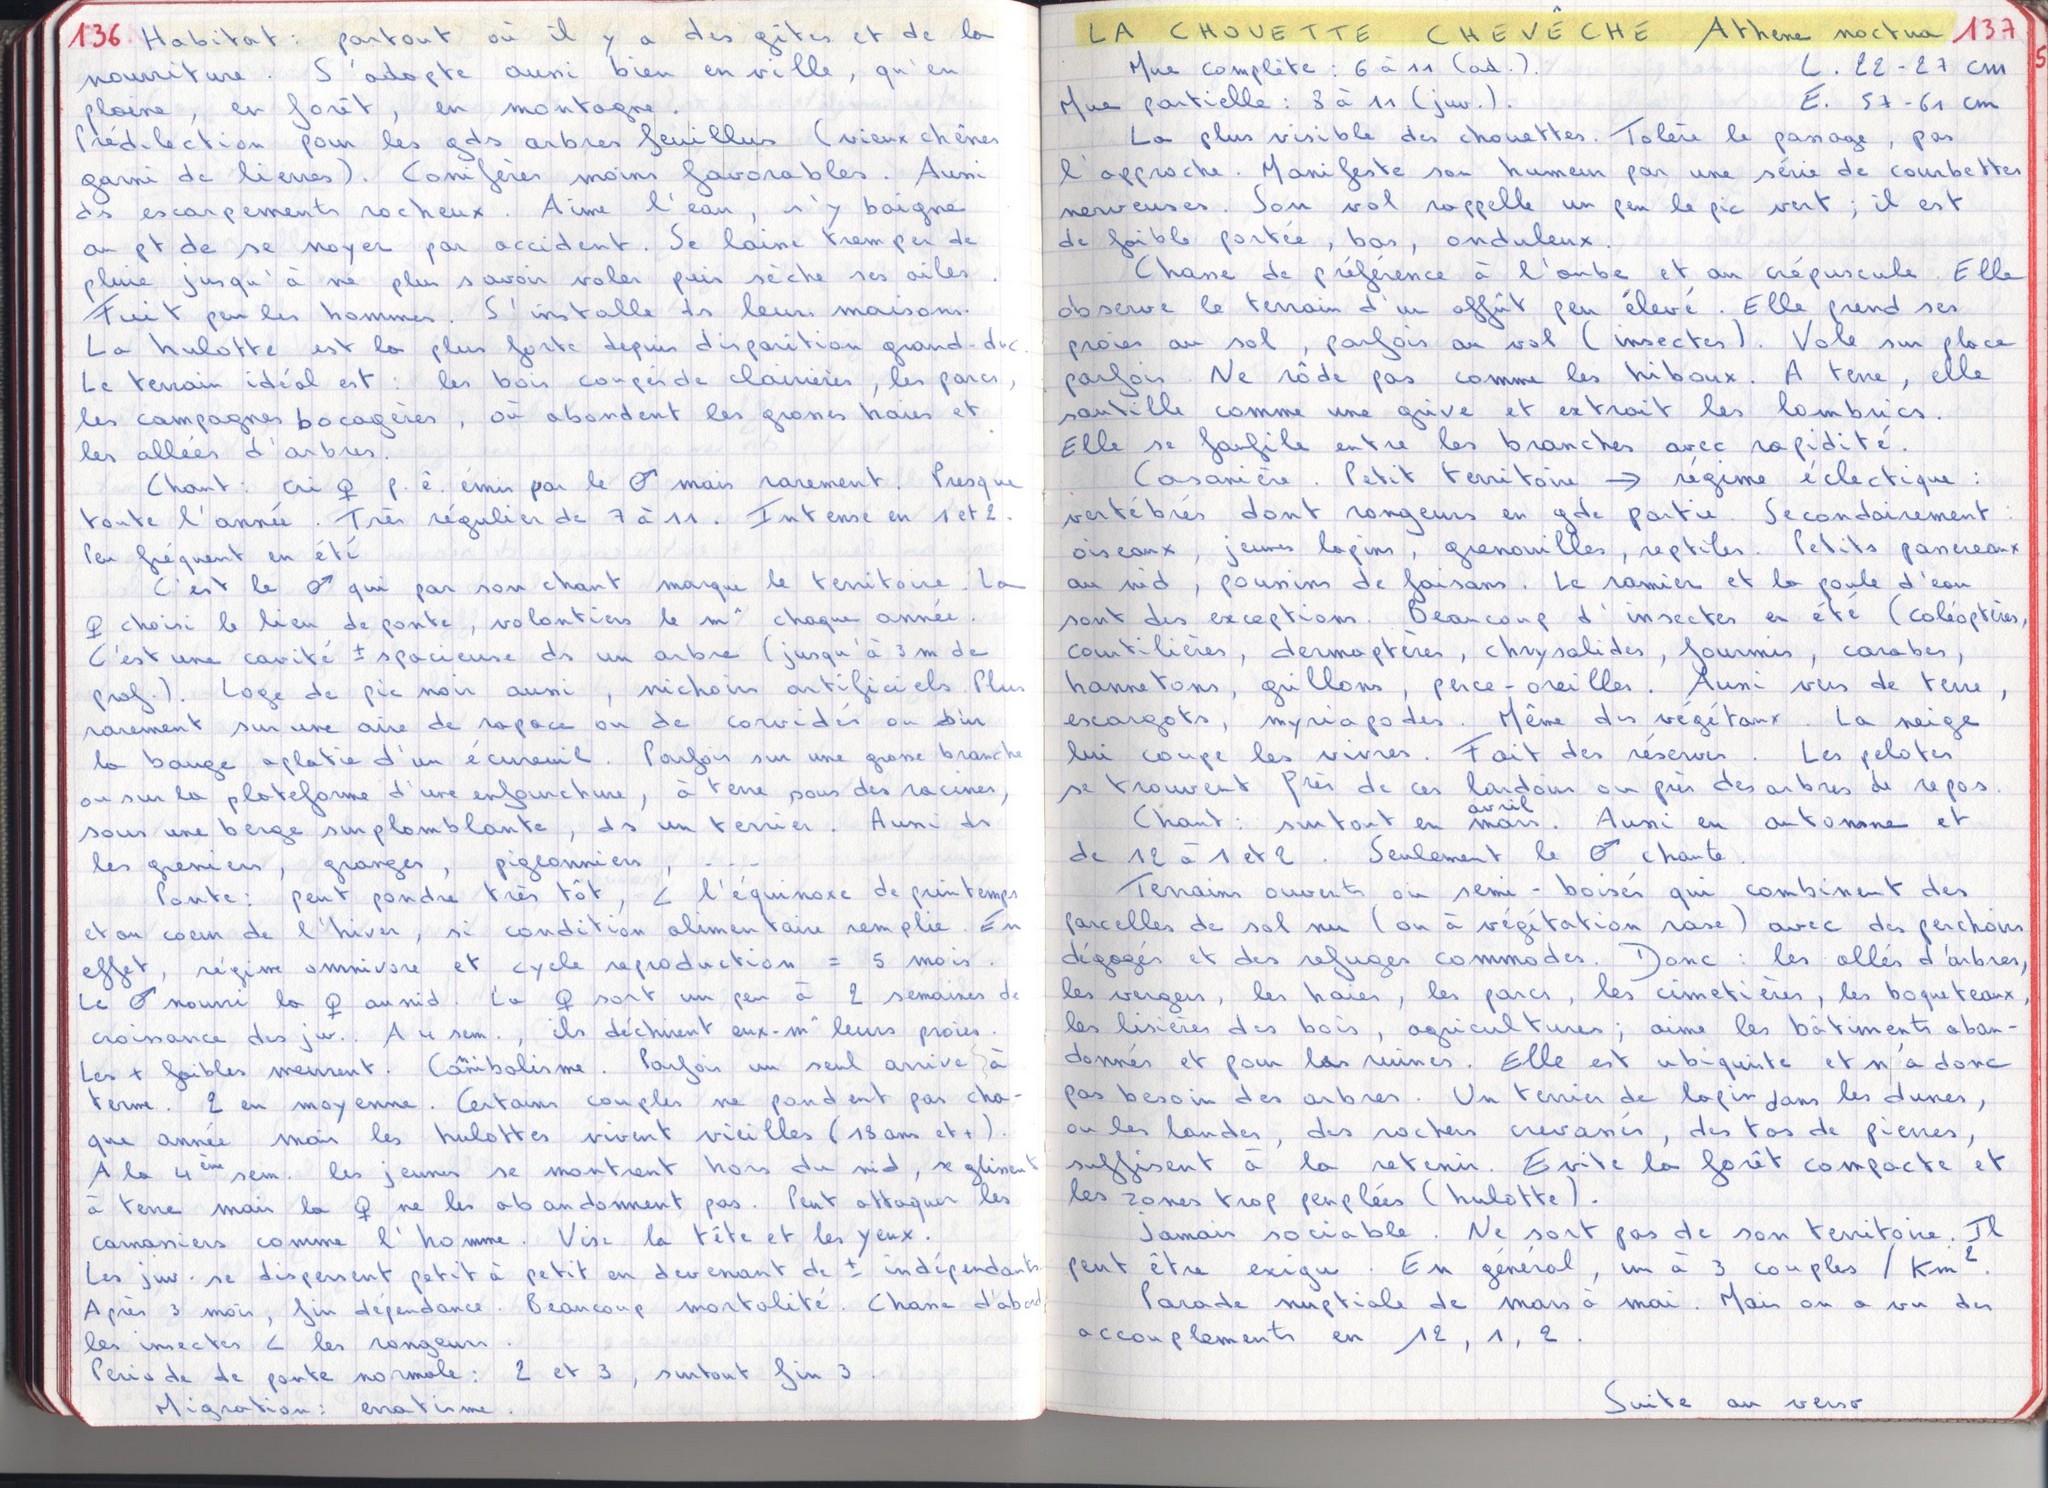 136. Habitat : partout où il y a des gîtes et de la
nourriture. S'adapte aussi bien en ville, qu'en
plaine, en forêt, en montagne.
Prédilection pour les gds arbres feuillus (vieux chênes
garni de lierres). Conifères moins favorables. Aussi
ds escarpements rocheux. Aime l'eau, s'y baigne
au pt de se noyer par accident. Se laisse tremper de
pluie jusqu'à ne plus savoir voler puis sèche ses ailes.
Fuit peu les hommes. S'installe ds leurs maisons.
La hulotte est la plus forte depuis disparition grand-duc.
Le terrain idéal est : les bois coupés de clairières, les parcs,
les campagnes bocagères, où abondent les grosses haies et
les allées d'arbres.
Chant : cri ♀ p. ê. émis par le ♂ mais rarement. Presque
toute l'année. Très régulier de 7 à 11. Intense en 1 et 2.
Peu fréquent en été
C'est le ♂ qui par son chant marque le territoire. La
♀ choisi le lieu de ponte, volontiers le m^ chaque année.
C'est une cavité ± spacieuse ds un arbre (jusqu'à 3 m de
prof.). Loge de pic noir aussi, nichoirs artificiels. Plus
rarement sur une aire de rapace ou de corvidés ou sur
la bauge aplatie d'un écureuil. Parfois sur une grosse branche
ou sur la plateforme d'une enfourchure, à terre sous des racines,
sous une berge surplomblante, ds un terrier. Aussi ds
les greniers, granges, pigeonniers, ...
Ponte : peut pondre très tôt, < l'équinoxe de printemps
et au coeur de l'hiver, si condition alimentaire remplie. En
effet, régime omnivore et cycle reproduction = 5 mois.
Le ♂ nourri la ♀ au nid. La ♀ sort un peu à 2 semaines de
croissance des juv.. A 4 sem., ils déchirent eux-m^ leurs proies.
Les + faibles meurent. Cannibolisme. Parfois un seul arrive à
terme. 2 en moyenne. Certains couples ne pondent pas cha-
que année mais les hulottes vivent vieilles (18 ans et +).
A la 4ème sem. les jeunes se montrent hors du nid, se glissent
à terre mais la ♀ ne les abandonnent pas. Peut attaquer les
carnassiers comme l'homme. Vise la tête et les yeux.
Les juv. se dispersent petit à petit en devenant de ± indépendants.
Après 3 mois, fin dépendance. Beaucoup mortalité. Chasse d'abord
les insectes < les rongeurs.
Période de ponte normale : 2 et 3, surtout fin 3.
Migration : erratisme.
LA CHOUETTE CHEVÊCHE Athene noctua 137
Mue complète : 6 à 11 (ad.). L. 22-27 cm
Mue partielle : 8 à 11 (juv.). E. 57-61 cm
La plus visible des chouettes. Tolère le passage, pas
l'approche. Manifeste son humeur par une série de courbettes
nerveuses. Son vol rappelle un peu le pic vert ; il est
de faible portée, bas, onduleux.
Chasse de préférence à l'aube et au crépuscule. Elle
observe le terrain d'un affût peu élevé. Elle prend ses
proies au sol, parfois au vol (insectes). Vole sur place
parfois. Ne rôde pas comme les hiboux. A terre, elle
sautille comme une grive et extrait les lombrics.
Elle se faufile entre les branches avec rapidité.
Casanière. Petit territoire → régime éclectique :
vertébrés dont rongeurs en gde partie. Secondairement :
oiseaux, jeunes lapins, grenouilles, reptiles. Petits passereaux
au nid, poussins de faisans. Le ramier et la poule d'eau
sont des exceptions. Beaucoup d'insectes en été (coléoptères,
courtilières, dermaptères, chrysalides, fourmis, carabes,
hannetons, grillons, perce-oreilles. Aussi vers de terre,
escargots, myriapodes. Même des végétaux. La neige
lui coupe les vivres. Fait des réserves. Les pelotes
se trouvent près de ces lardoirs ou près des arbres de repos.
Chant : surtout en mars avril. Aussi en automne et
de 12 à 1 et 2. Seulement le ♂ chante.
Terrains ouverts ou semi-boisés qui combinent des
parcelles de sol nu (ou à végétation rase) avec des perchoirs
dégagés et des refuges commodes. Donc : les allés d'arbres,
les vergers, les haies, les parcs, les cimetières, les boqueteaux,
les lisières des bois, agricultures ; aime les bâtiments aban-
donnés et pour las ruines. Elle est ubiquiste et n'a donc
pas besoin des arbres. Un terrier de lapin dans les dunes,
ou les landes, des rochers crevassés, des tas de pierres,
suffisent à la retenir. Evite la forêt compacte et
les zones trop peuplées (hulotte).
Jamais sociable. Ne sort pas de son territoire. Il
peut être exigu. En général, un à 3 couples / Km².
Parade nuptiale de mars à mai. Mais on a vu des
accouplements en 12, 1, 2.
Suite au verso